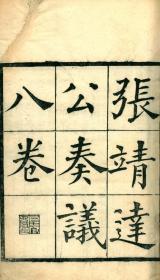 張靖達
公奏議
八卷